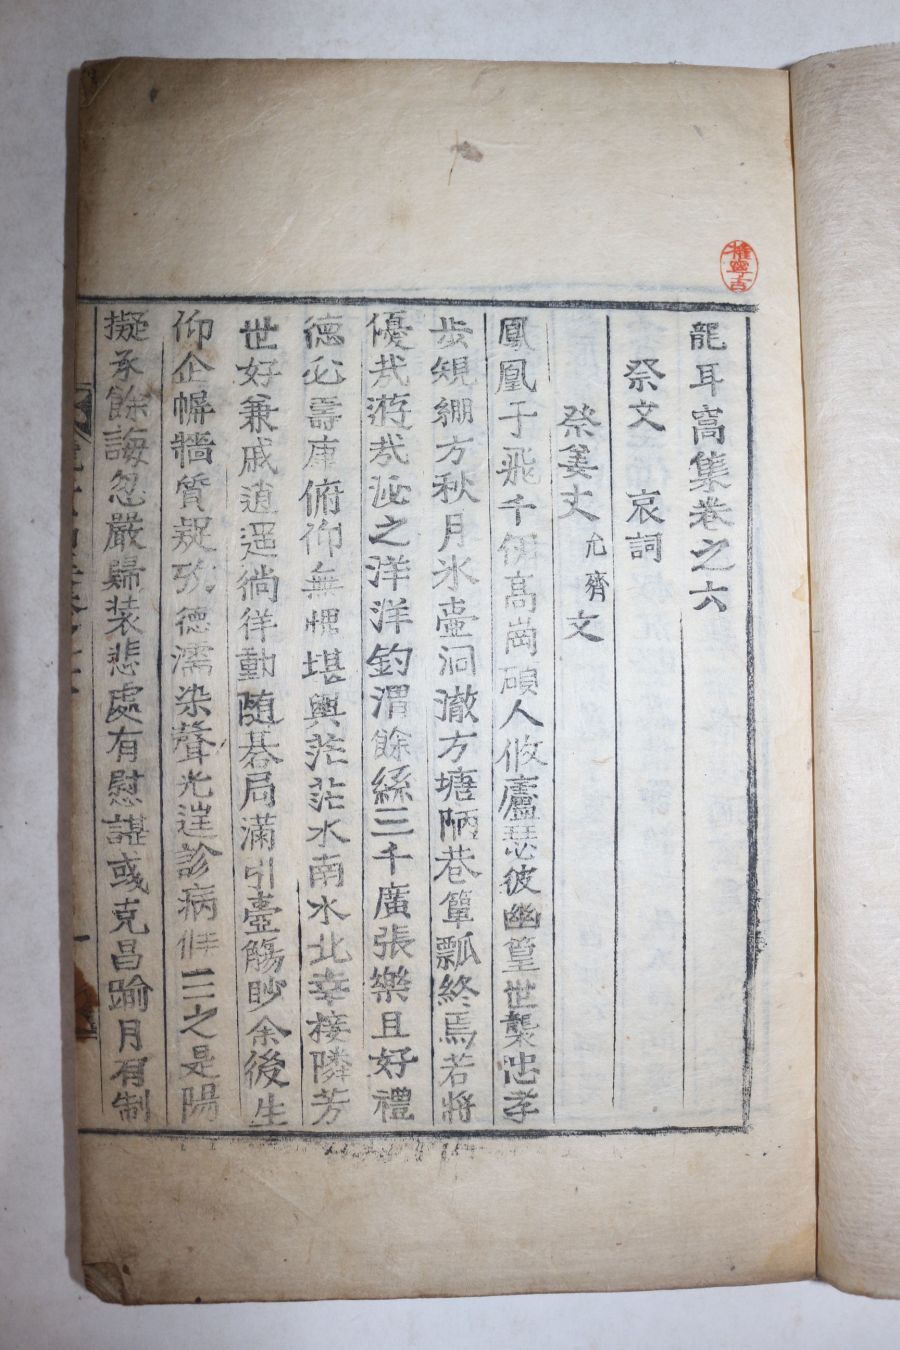 龍耳窩集卷之六
祭文 哀詞
祭姜丈允齊文
鳳凰于飛千仞高崗碩人攸廬瑟彼幽篁世襲忠孝
步規繩方秋月氷壺洞澈方塘陋巷簞瓢終焉若將
優哉游哉泌之洋洋釣渭餘絲三千廣張樂且好禮
德必壽康俯仰無愧堪輿茫茫水南水北幸接隣芳
世好兼戚逍遥徜徉動随碁局滿引壺觴眇余後生
仰企幈牆質疑攷德濡染聲光遑診病㑣三之是陽
擬承餘誨忽嚴歸装悲處有慰諶或克昌踰月有制